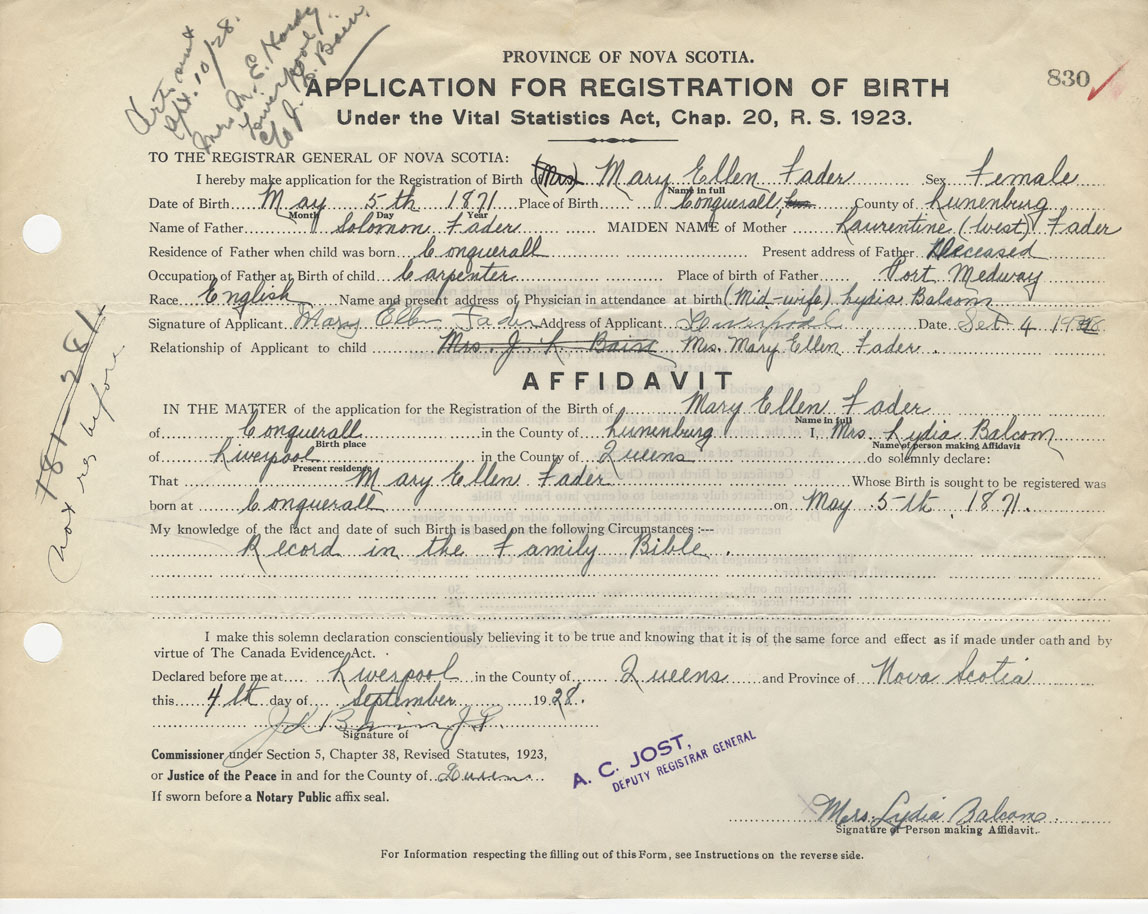 Cert. sent
Sept. 10/28.
Mrs. M. E. Hardy
Liverpool,
c/o J. K. Bain.
PROVINCE OF NOVA SCOTIA.
APPLICATION FOR REGISTRATION OF BIRTH
830
Under the Vital Statistics Act, Chap. 20, R. S. 1923.
TO THE REGISTRAR GENERAL OF NOVA SCOTIA:
I hereby make application for the Registration of Birth of (Mrs) Mary Ellen Fader Sex Female
Name in full
Date of Birth May 5th 1871 Place of Birth Conquerall, County of Lunenburg
Month Day Year
Name of Father Solomon Fader MAIDEN NAME of Mother Laurentine (West) Fader
Residence of Father when child was born Conquerall Present address of Father Deceased
Occupation of Father at Birth of child Carpenter Place of birth of Father Port Medway
Race English Name and present address of Physician in attendance at birth (Mid-wife) Lydia Balcom
Signature of Applicant Mary Ellen Fader Address of Applicant Liverpool Date Set 4 1928.
Relationship of Applicant to child Mrs. J. K. Bain Mrs. Mary Ellen Fader.
AFFIDAVIT
IN THE MATTER of the application for the Registration of the Birth of Mary Ellen Fader
Name in full
of Conquerall in the County of Lunenburg I, Mrs. Lydia Balcom
Birth place Name of person making Affidavit
of Liverpool in the County of Queens do solemnly declare:
Present residence
That Mary Ellen Fader Whose Birth is sought to be registered was
born at Conquerall on May 5th, 1871.
My knowledge of the fact and date of such Birth is based on the following Circumstances :---
Record in the Family Bible.
not reg before
I make this solemn declaration conscientiously believing it to be true and knowing that it is of the same force and effect as if made under oath and by
virtue of The Canada Evidence Act.
Declared before me at Liverpool in the County of Queens and Province of Nova Scotia
this 4th day of September 1928.
J K Bain J.P.
Signature of
Commissioner under Section 5, Chapter 38, Revised Statutes, 1923,
or Justice of the Peace in and for the County of Queens
If sworn before a Notary Public affix seal.
A. C. JOST,
DEPUTY REGISTRAR GENERAL
Mrs. Lydia Balcom
Signature of Person making Affidavit.
For Information respecting the filling out of this Form, see Instructions on the reverse side.